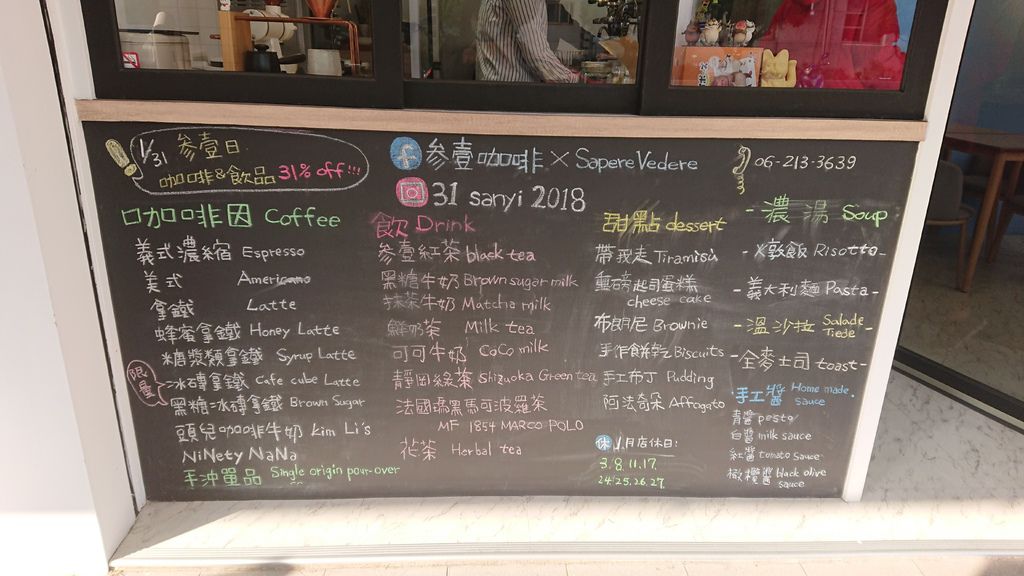 1/31 參壹日
咖啡&飲品 31% off!!!
參壹咖啡 × Sapere Vedere
31 sanyi 2018
06-213-3639
咖啡因 Coffee
義式濃縮 Espresso
美式 Americano
拿鐵 Latte
蜂蜜拿鐵 Honey Latte
糖漿類拿鐵 Syrup Latte
限量
冰磚拿鐵 Cafe cube Latte
黑糖冰磚拿鐵 Brown Sugar
頭兒咖啡牛奶 Kim Li's
NiNety NaNa
手沖單品 Single origin pour-over
飲 Drink
參壹紅茶 black tea
黑糖牛奶 Brown sugar milk
抹茶牛奶 Matcha milk
鮮奶茶 Milk tea
可可牛奶 CoCo milk
靜岡綠茶 Shizuoka Green tea
法國瑪黑馬可波羅茶
MF 1854 MARCO POLO
花茶 Herbal tea
甜點 dessert
帶我走 Tiramisù
重磅起司蛋糕
cheese cake
布朗尼 Brownie
手作餅乾 Biscuits
手工布丁 Pudding
阿法奇朵 Affogato
休 1月店休日:
3.8.11.17
24.25.26.27
-濃湯 Soup
-燉飯 Risotto-
-義大利麵 Pasta-
-溫沙拉 Salade Tiede-
-全麥土司 toast-
手工醬 Home made sauce
青醬 pesto
白醬 milk sauce
紅醬 tomato sauce
橄欖醬 black olive
sauce